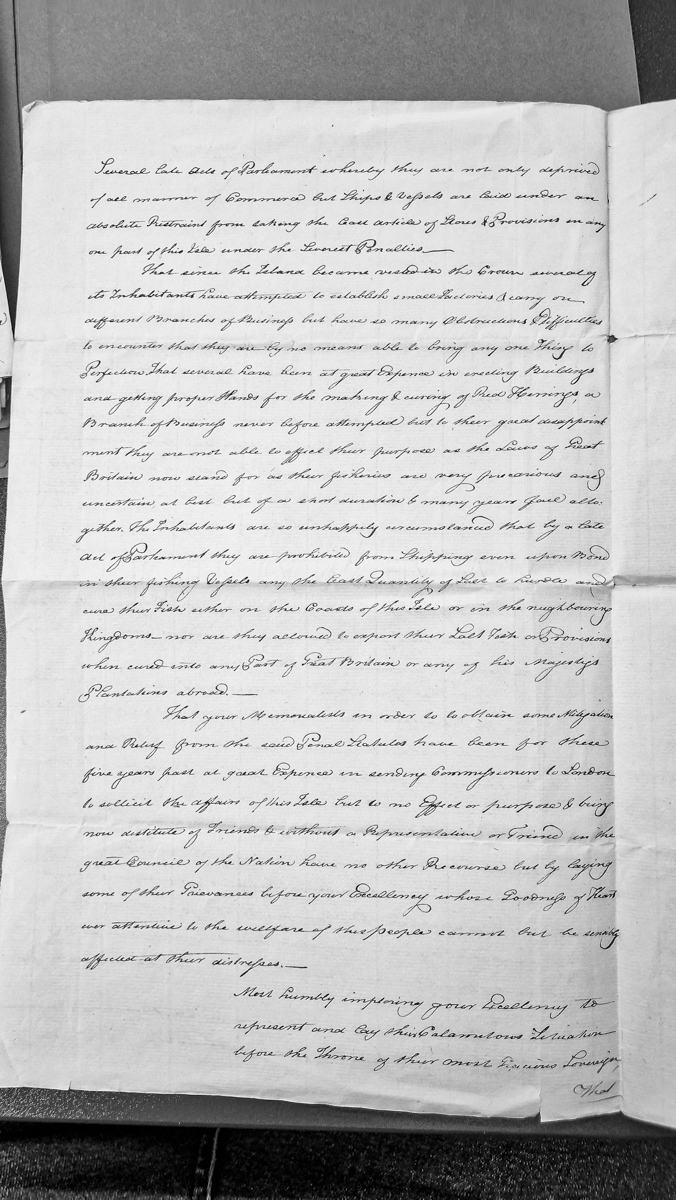 Several late Acts of Parliament whereby they are not only deprived
of all manner of Commerce but Ships & Vessels are laid under an
absolute Restraint from taking the least article of Stores & Provisions in any
one part of this Isle under the Severest Penalties.—
That since the Island became vested in the Crown several of
its Inhabitants have attempted to establish small Factories & carry on
different Branches of Business but have so many Obstructions & Difficulties
to encounter that they are by no means able to bring any one Thing to
Perfection. That several have been at great Expence in erecting Buildings
and getting proper Hands for the making & curing of Red Herrings, a
Branch of Business never before attempted but to their great disappoint
ment they are not able to effect their purpose as the Laws of Great
Britain now stand for as their fisheries are very precarious and
uncertain at best but of a short duration & many years fail alto-
gether. The Inhabitants are so unhappily circumstanced that by a late
Act of Parliament they are prohibited from Shipping even upon Bond
in their fishing Vessels any the least Quantity of Salt to hurdle and
cure their Fish either on the Coasts of this Isle or in the neighbouring
Kingdoms — nor are they allowed to export their Salt Fish or Provisions
when cured into any Part of Great Britain or any of his Majesty's
Plantations abroad.—
That your Memorialists in order to to obtain some Mitigation
and Relief from the said Penal Statutes have been for these
five years past at great Expence in sending Commissioners to London
to sollicit the affairs of this Isle but to no Effect or purpose & being
now distitute of Friends & without a Representative or Friend in the
great Council of the Nation have no other Recourse but by laying
some of their Grievances before your Excellency whose Goodness of Heart
ever attentive to the wellfare of this People cannot but be sensibly
affected at their distresses.—
Most humbly imploring your Excellency to
represent and lay their Calamitous Situation
before the Throne of their most Gracious Sovereign,
That